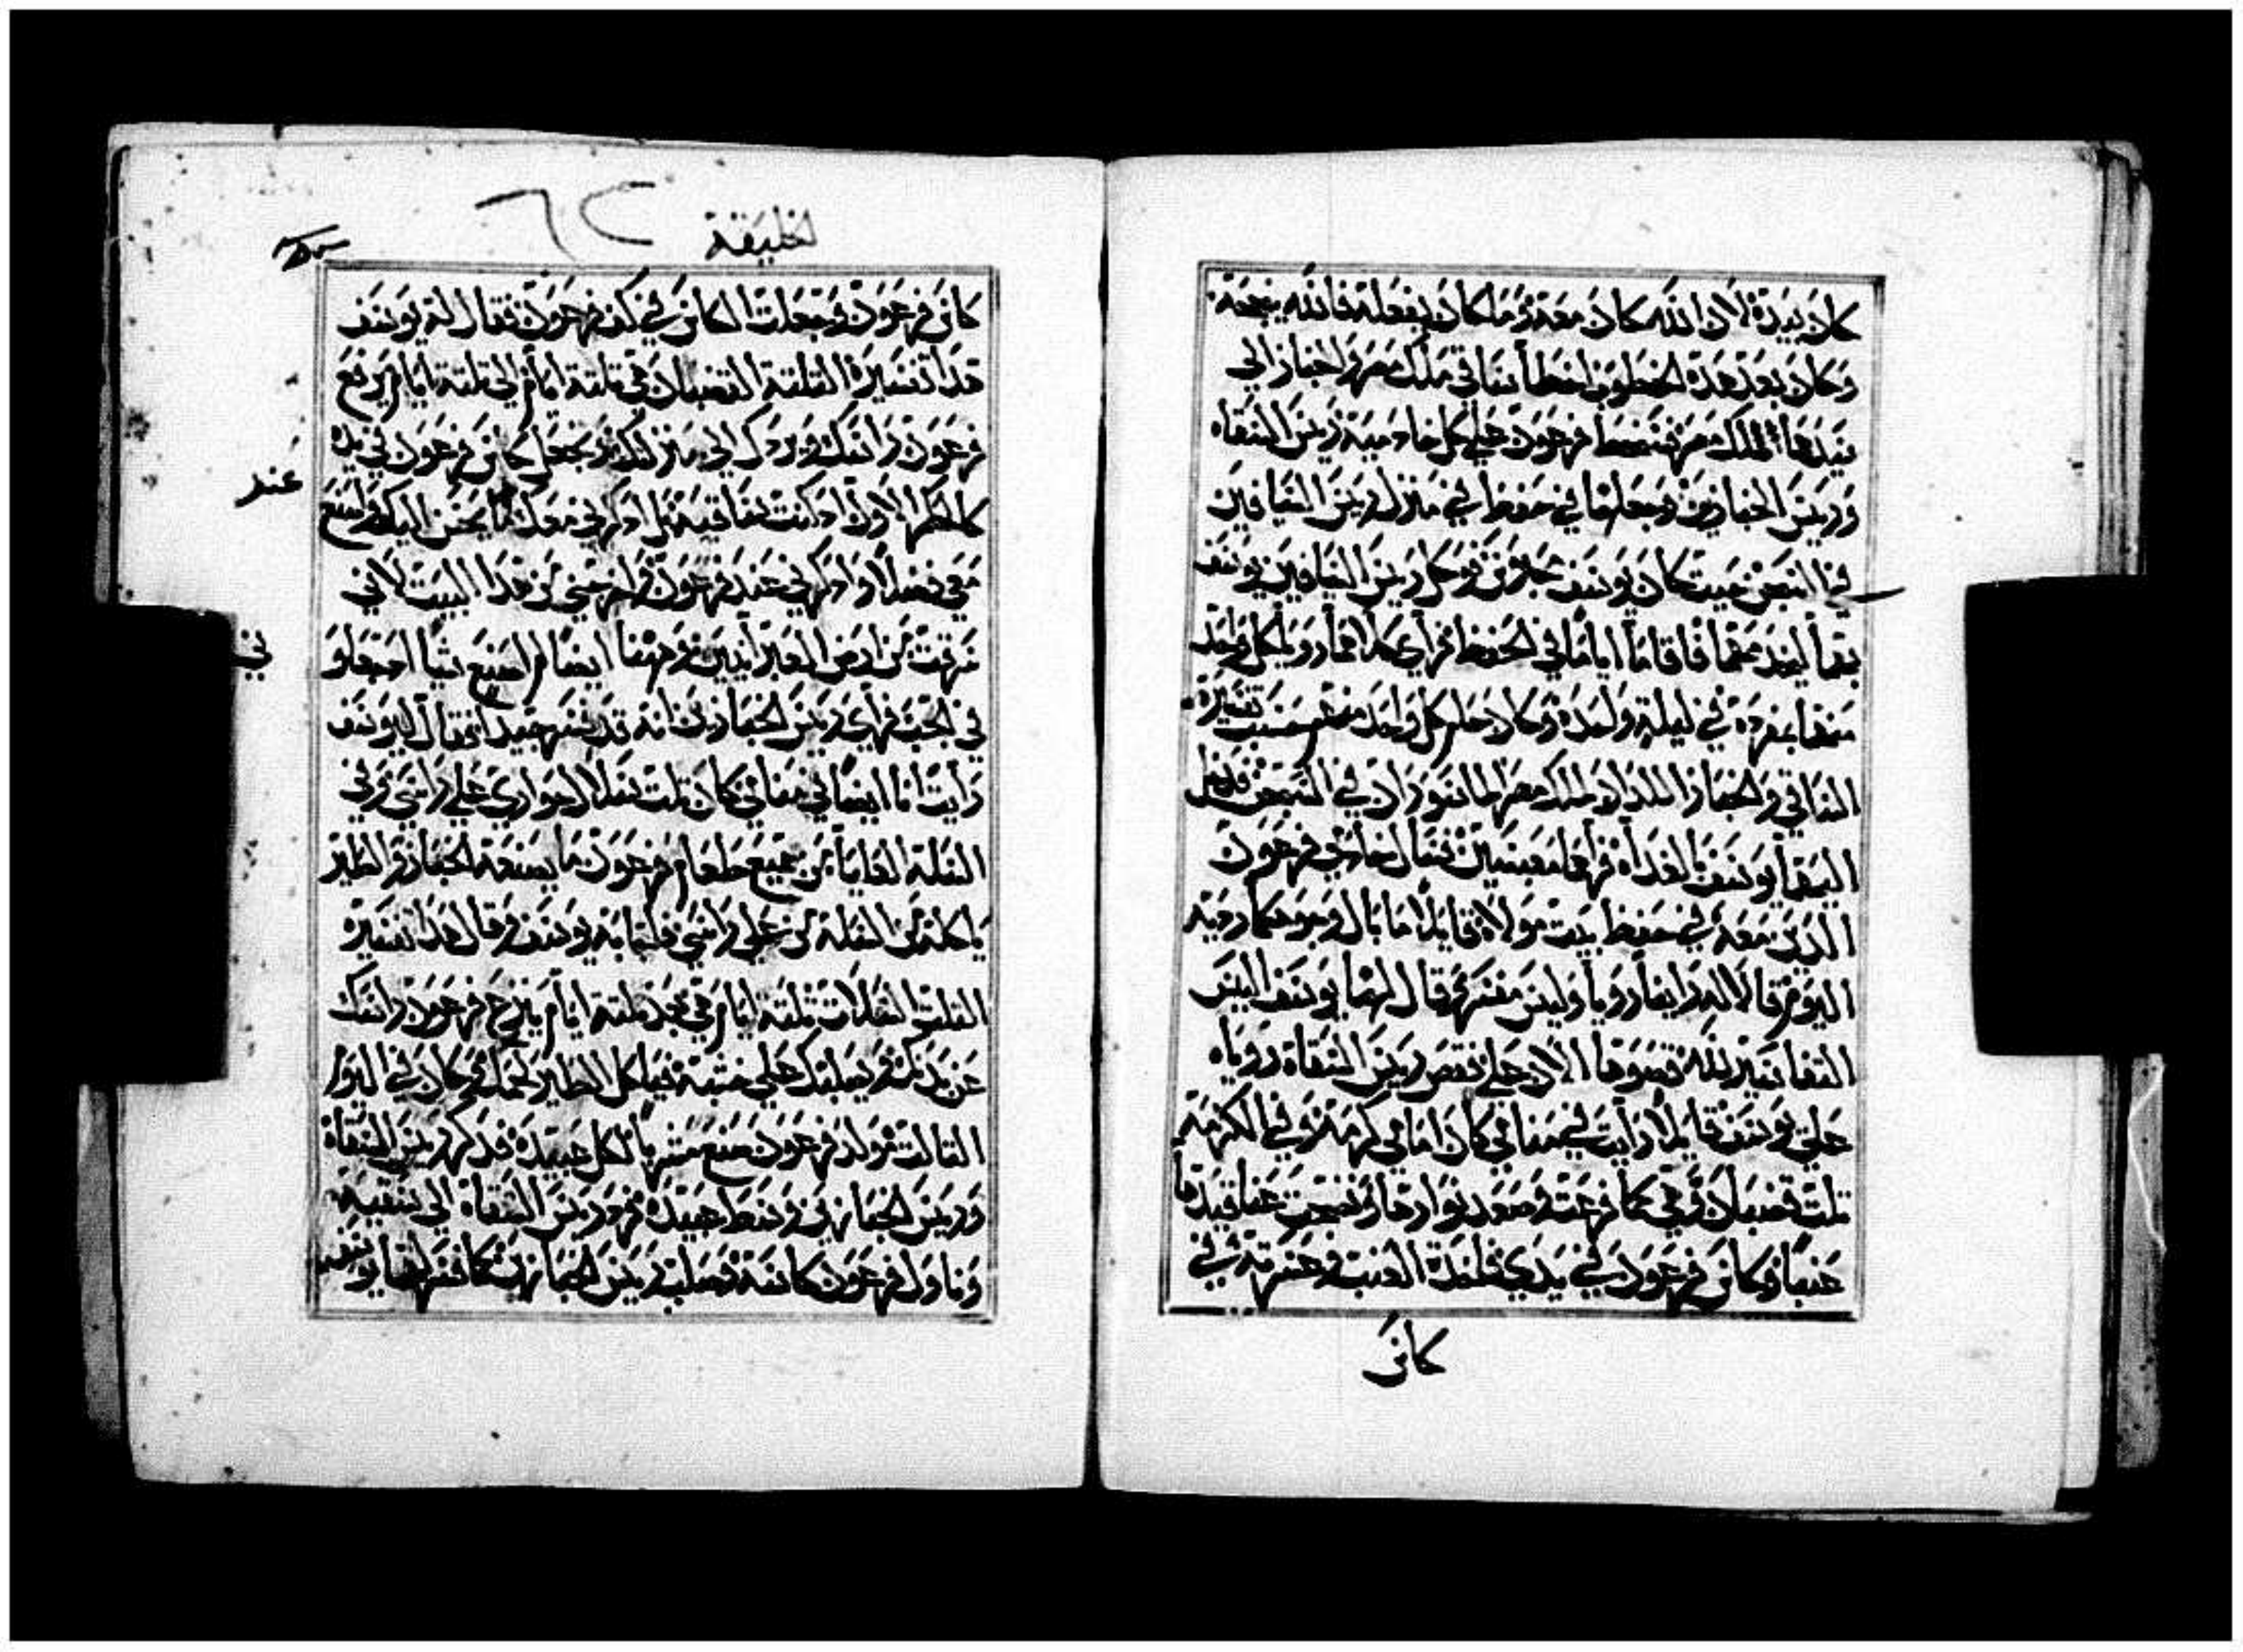 كان بيده لان الله كان معه وما كان يفعله فالله ينجحه
وكان بعد هذه الخطوب اخطأ ساقي ملك مصر والخباز الي
سيدهما ملك مصر فسخط فرعون علي كل خادميه رييس السقاه
ورييس الخبازين وجعلهما في حفظ في منزل رييس السيافين
في السجن حيث كان يوسف محبوس ووكل رييس السيافين يوسف
بهما ليخدمهما فاقاما اياما في الحفظ فراي كلاهما رويا كل واحد
منهما بمفرده في ليلة واحده وكان حلم كل واحد منهم حسب تفسيره
الساقي والخباز اللذان لملك مصر الماسوران في السجن فدخل
اليهما يوسف بالغداه فراهما معبسين فسال خادمي فرعون
الذين معه في حفظ بيت مولاه قايلا ما بال وجوهكما رديه
اليوم قالا له راينا رويا وليس مفسر لها قال لهما يوسف اليس
التفاسير لله قصوها الان علي فقص رييس السقاة روياه
علي يوسف قايلا رايت في منامي كان امامي كرمة وفي الكرمة
ثلث قضبان وهي كما فرعت وصعد نوارها ونضجت عناقيدها
عنبا وكاس فرعون في يدي فاخذت العنب وعصرته في
كاس
لخليقة
٦٢
كاس فرعون وجعلت الكاس في كف فرعون فقال له يوسف
هذا تفسيره الثلثة القضبان هي ثلثة ايام الي ثلثة ايام يرفع
فرعون راسك ويردك الي منزلتك وتجعل كاس فرعون في يده
كالحكم الاول اذ كنت ساقيه بل اذكرني معك كما يحسن اليك واصنع
معي فضلا واذكرني عند فرعون واخرجني من هذا البيت لانني
عند
سرقت من ارض العبرانيين وههنا ايضا لم اصنع شيا اذ جعلو
ني
في الجب فراي رييس الخبازين انه قد فسر جيدا فقال ليوسف
رايت انا ايضا في منامي كان ثلث سلال حواري علي راسي وفي
السلة العليا من جميع طعام فرعون ما يصنعه الخباز والطير
ياكله من السلة من علي راسي فاجابه يوسف وقال هذا تفسيره
الثلث السلات ثلثة ايام هي بعد ثلثة ايام ينزع فرعون راسك
عن بدنك ويصلبك علي خشبة فياكل الطير لحمك وكان في اليوم
الثالث مولد فرعون صنع مشربا لكل عبيده فذكر رييس السقاة
ورييس الخبازين وسط عبيده فرد رييس السقاة الي سقيه
وناول فرعون كاسه وصلب رييس الخبازين كما فسر لهما يوسف